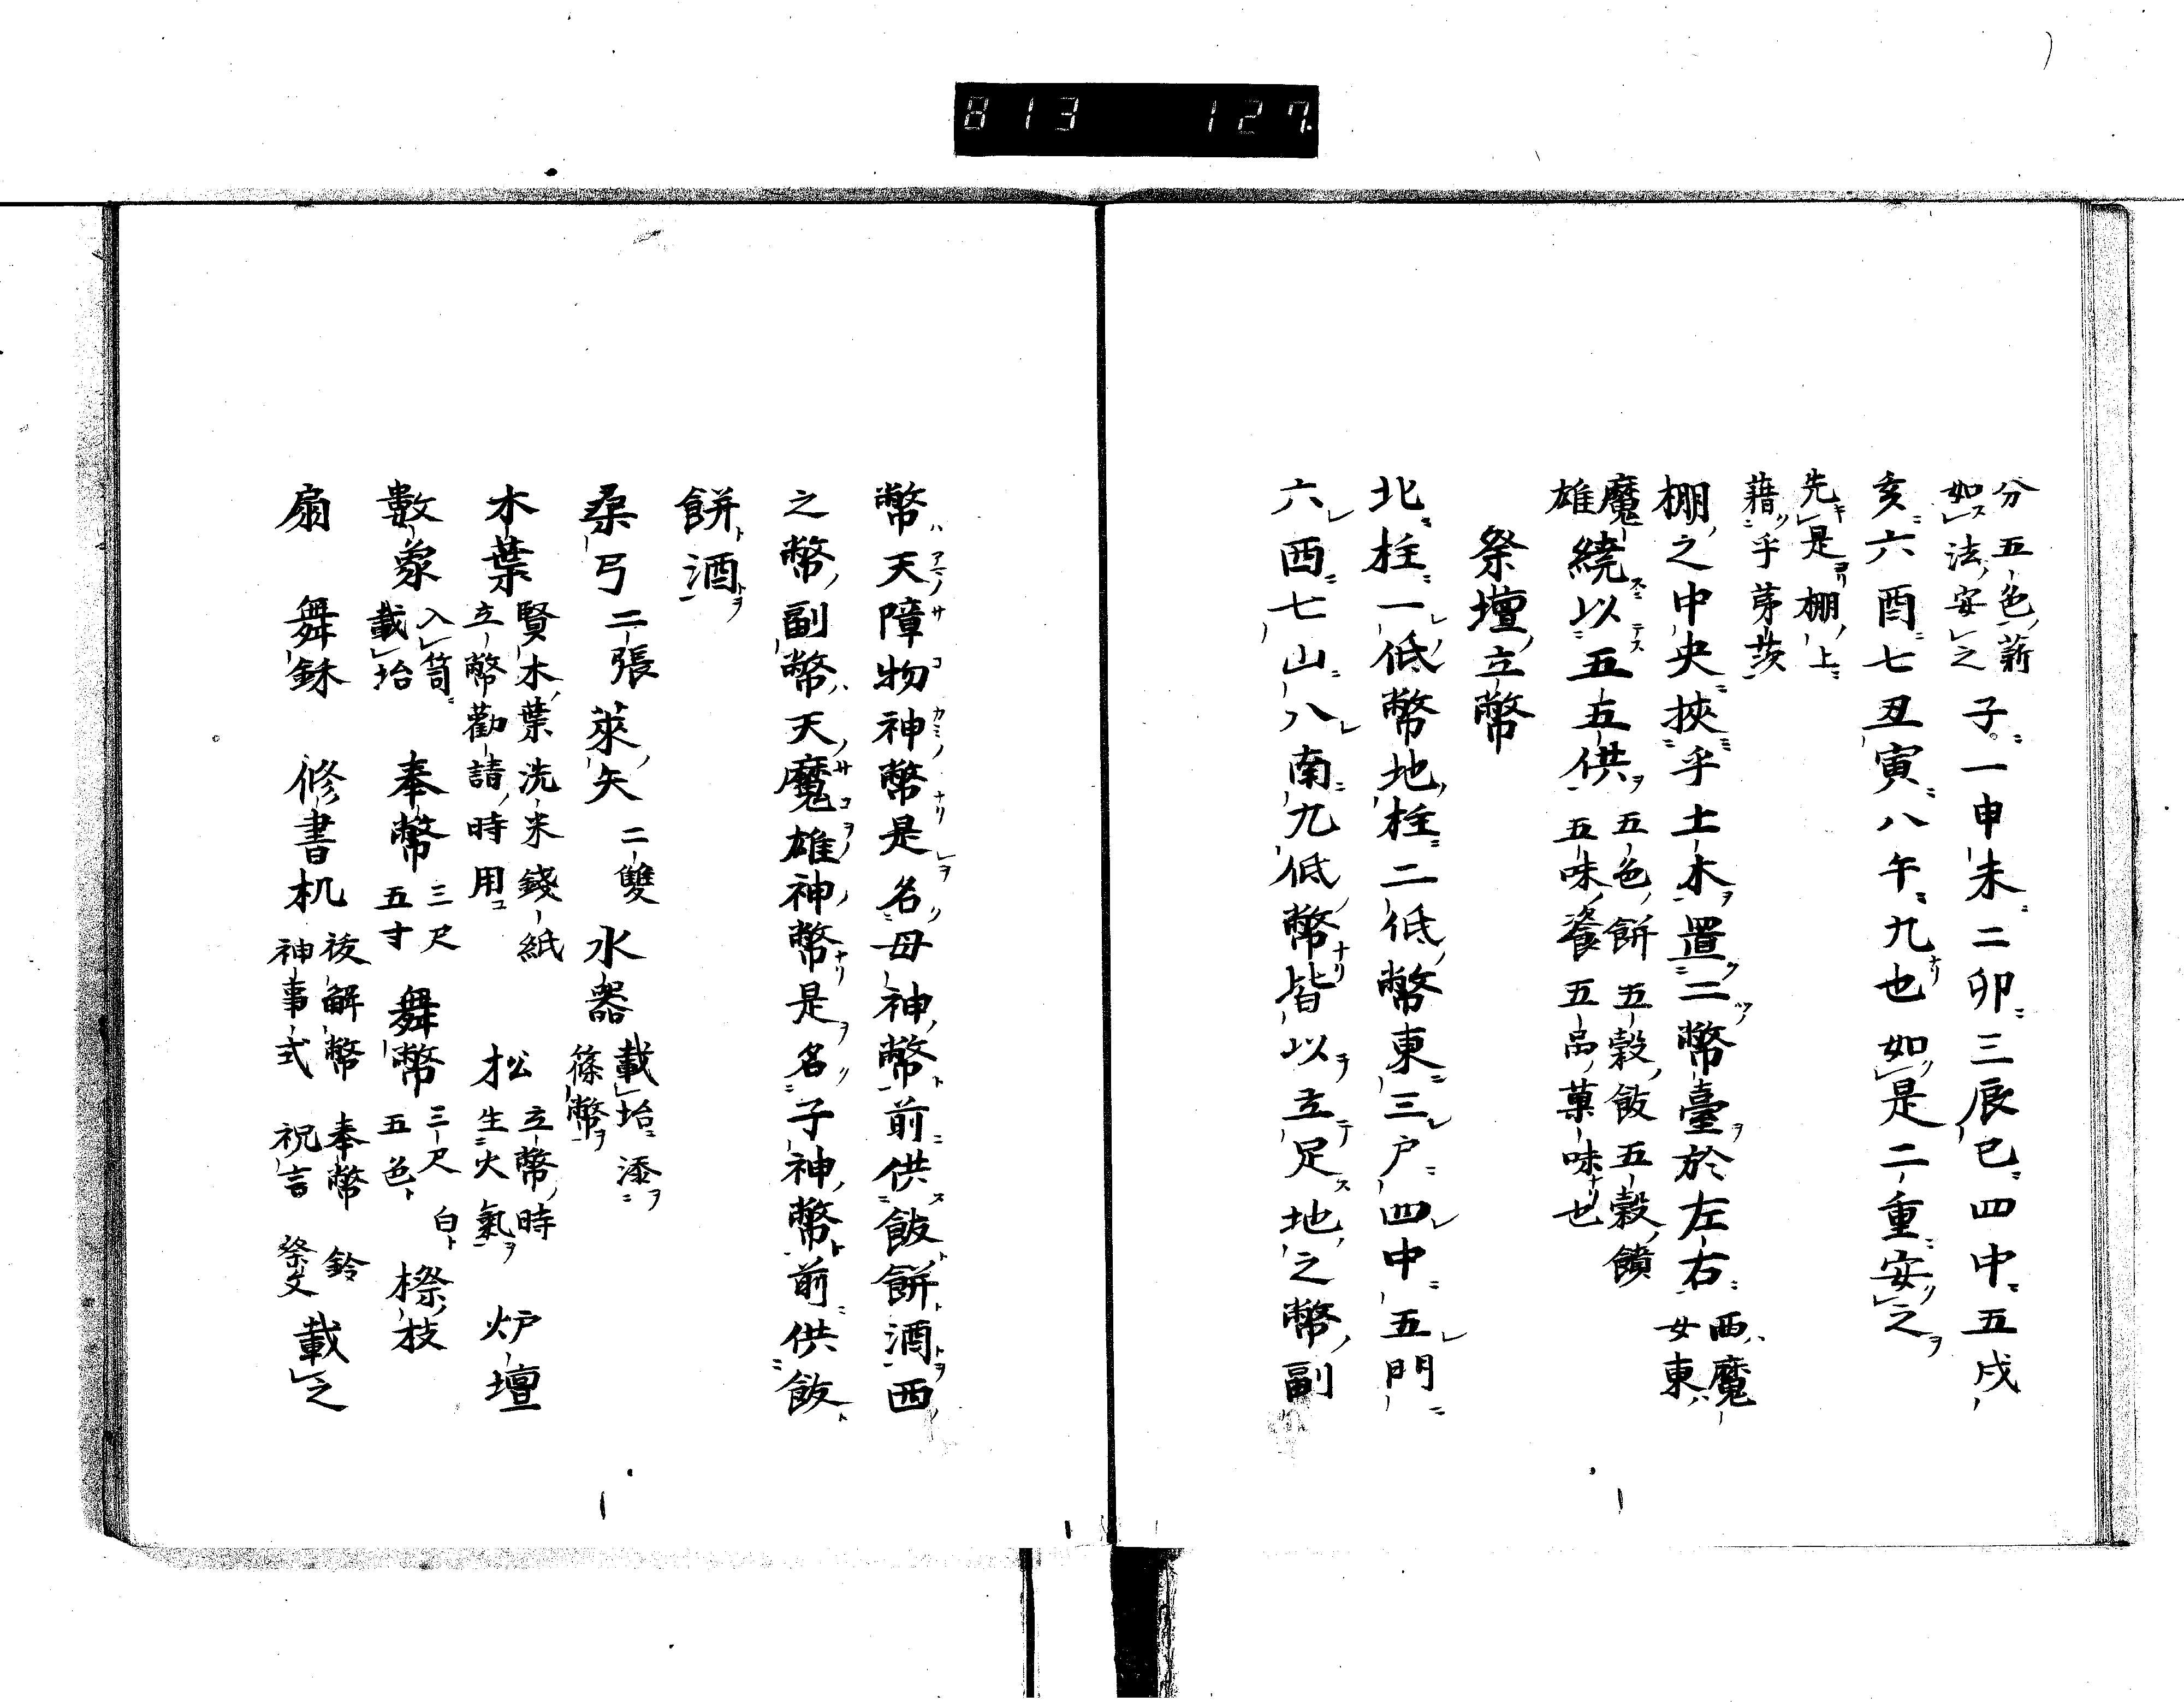 813 127
分五色薪
如法安之 子一申未二卯三辰巳四中五戌
亥六酉七丑寅八午九也如是二重安之
先是棚上
藉乎茅茨
棚之中央挾乎土木置二幣臺於左右 西魔
女東
魔
雄 繞以五五供 五色餅五穀飯五穀饋
五味飧五品菓味也
祭壇立幣
北柱一低幣地柱二低幣東三戸四中五門
六西七山八南九低幣皆以立足地之幣副
幣天障物神幣是名母神幣前供飯餅酒西
之幣副幣天魔雄神幣是名子神幣前供飯
餅酒
桑弓 二張 萊矢 二雙 水器 載坮添
篠幣
木葉 賢木葉洗米錢紙
立幣勸請時用 松 立幣時
生火氣 炉壇
數象 入筒
載坮 奉幣 三尺
五寸 舞幣 三尺 白
五色 樒枝
扇 舞鉌 修書机 後解幣 奉幣 鈴
神事式 祝言 祭文 載之